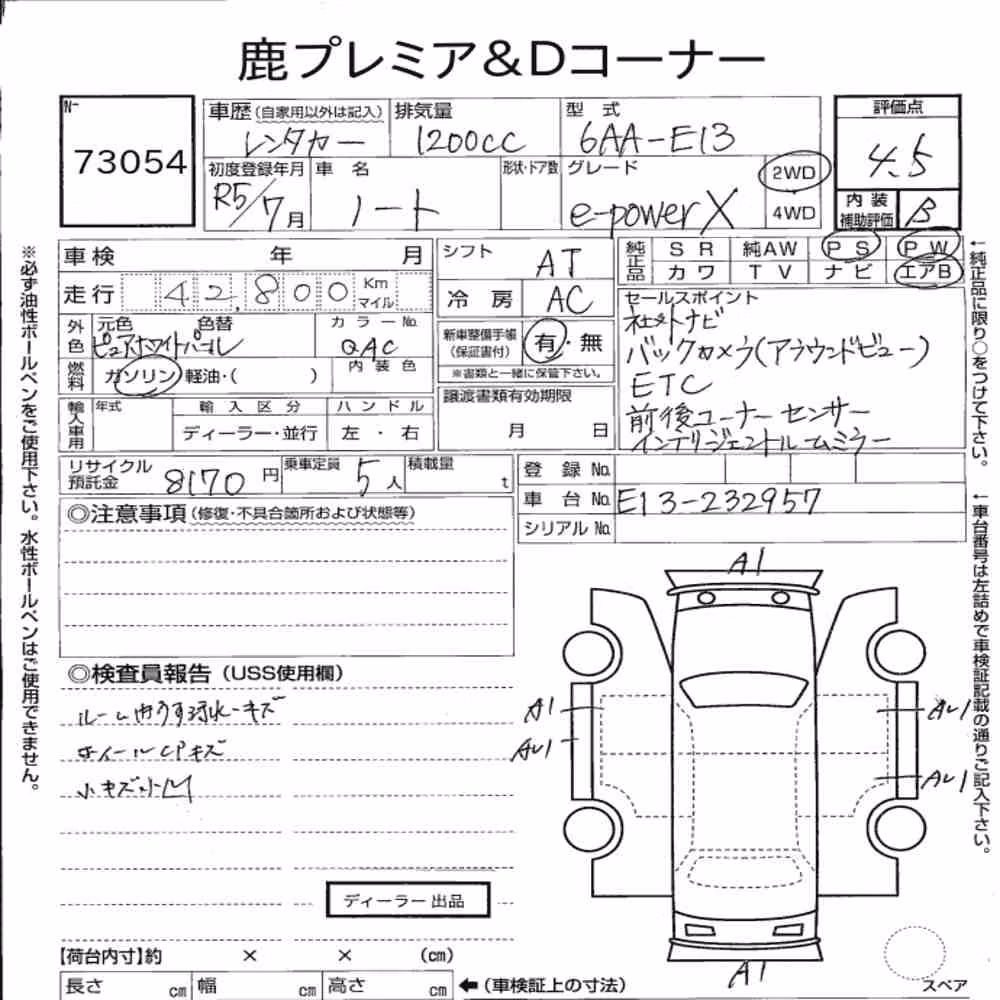 鹿プレミア&Dコーナー
N-
73054
車歴 (自家用以外は記入)
レンタカー
排気量
1200cc
型式
6AA-E13
評価点
4.5
初度登録年月
R5/7月
車名
ノート
形状・ドア数
グレード
e-power X
2WD
4WD
内装
補助評価
B
車検 年 月
走行 42,800 Km
マイル
外色
元色 色替
ピュアホワイトパール
カラーNo.
QAC
燃料
ガソリン 軽油・( )
内装色
輸入車用
年式
輸入区分
ディーラー・並行
ハンドル
左・右
シフト
AT
冷房
AC
新車整備手帳
(保証書付)
有・無
※書類と一緒に保管下さい。
譲渡書類有効期限
月 日
純正品
SR 純AW PS PW
カワ TV ナビ エアB
セールスポイント
社外ナビ
バックカメラ(アラウンドビュー)
ETC
前後コーナーセンサー
インテリジェントルームミラー
リサイクル
預託金
8170円
乗車定員
5人
積載量
t
登録No.
車台No. E13-232957
シリアルNo.
◎注意事項 (修復・不具合箇所および状態等)
◎検査員報告 (USS使用欄)
ホイールCPキズ
小キズ小凹
ディーラー出品
A1
A1
AU1
AU1
AU1
A1
スペア
【荷台内寸】約 × × (cm)
長さ cm 幅 cm 高さ cm ←(車検証上の寸法)
※必ず油性ボールペンをご使用下さい。水性ボールペンはご使用できません。
←純正品に限り○をつけて下さい。
←車台番号は左詰めで車検証記載の通りご記入下さい。